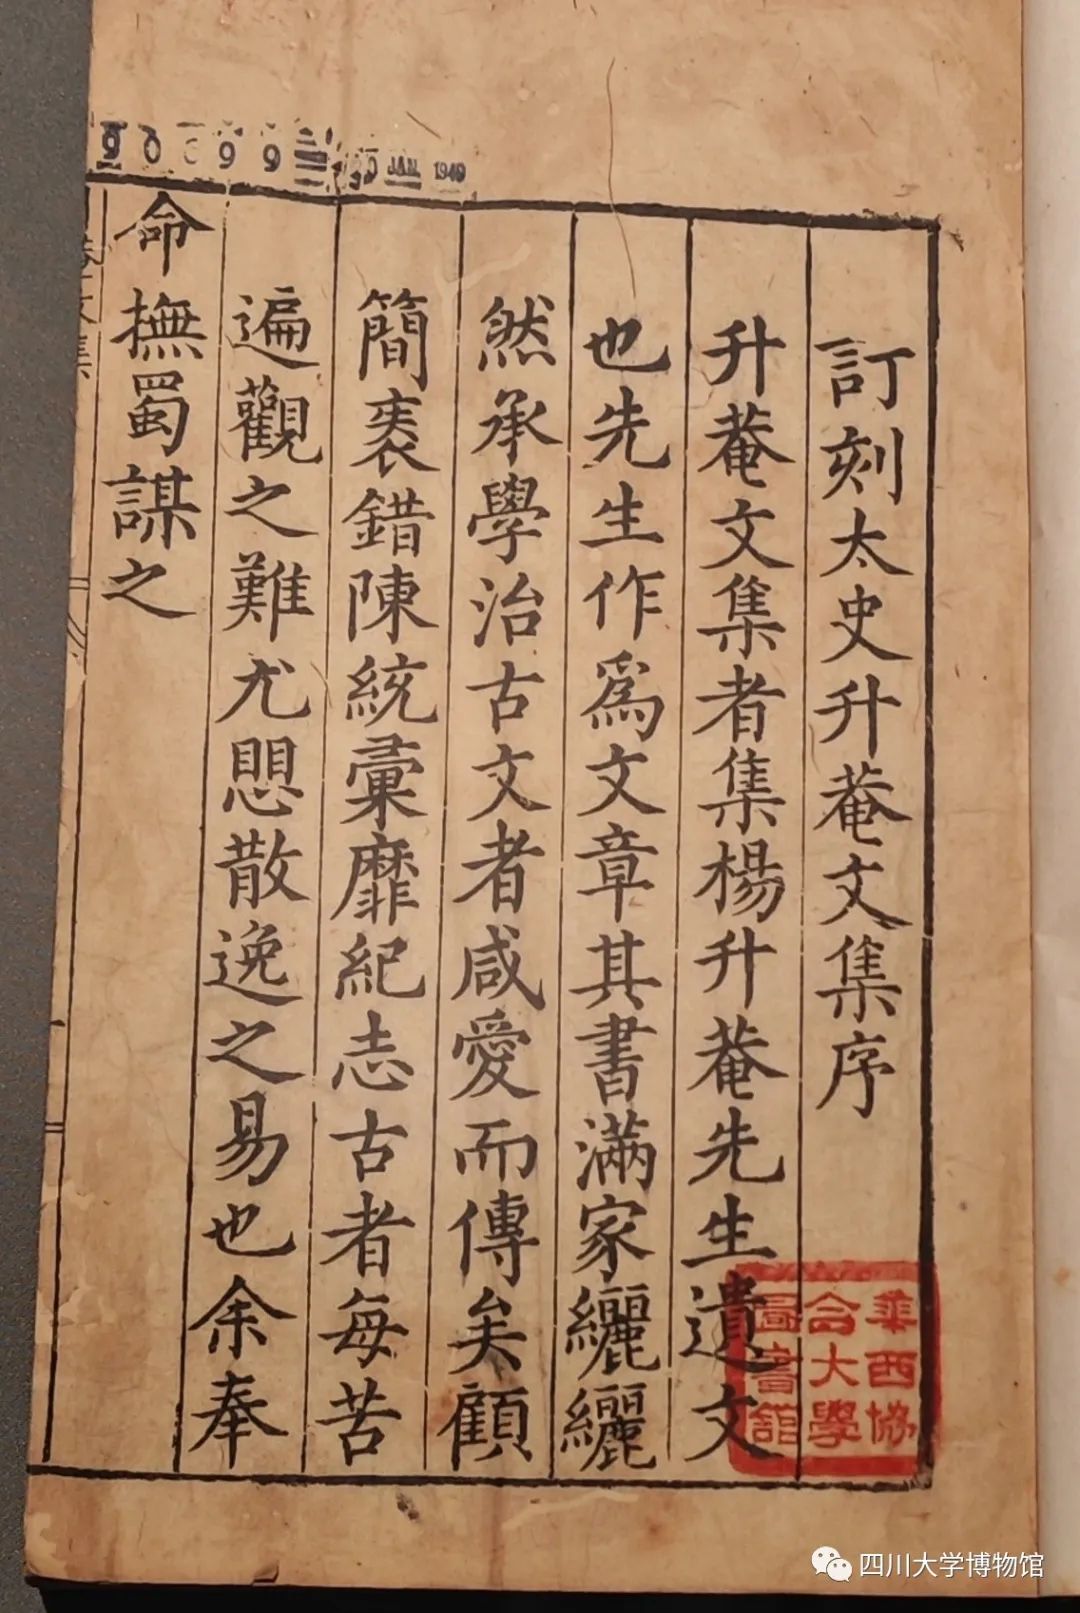 訂刻太史升菴文集序
升菴文集者集楊升菴先生遺文
也先生作爲文章其書滿家纚纚
然承學治古文者咸愛而傳矣顧
簡袠錯陳統彙靡紀志古者每苦
遍觀之難尤愳散逸之易也余奉
命撫蜀謀之
華西協
合大學
圖書館
JAN 1949
四川大学博物馆